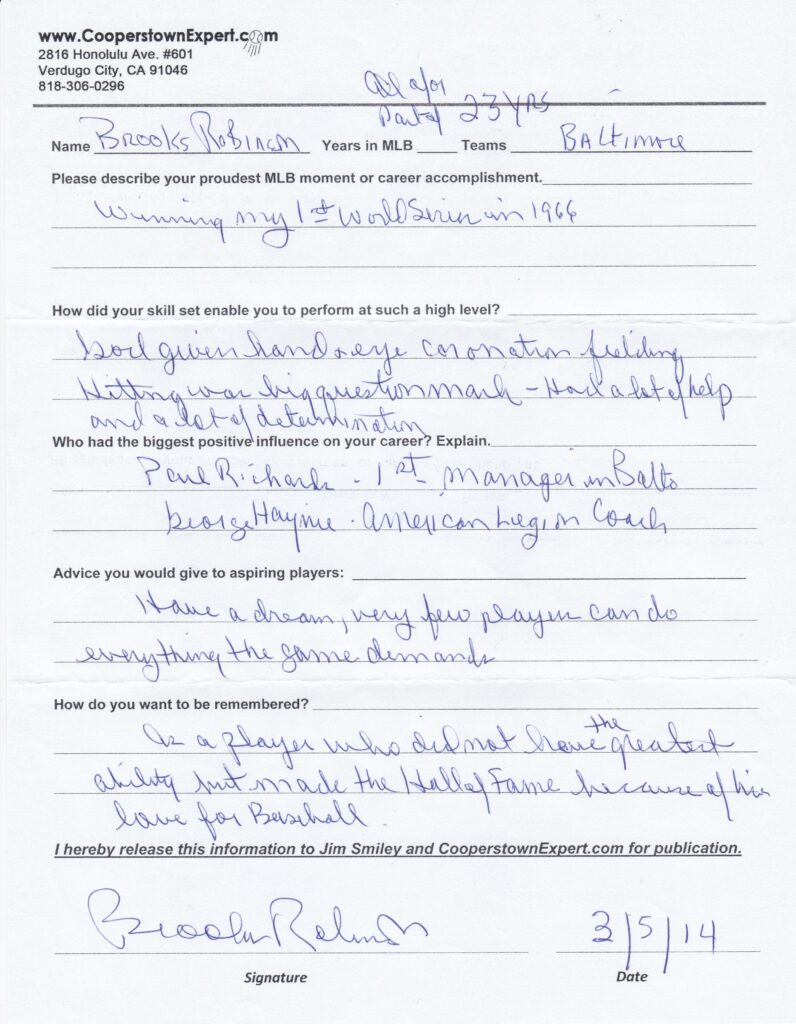 www.CooperstownExpert.com
2816 Honolulu Ave. #601
Verdugo City, CA 91046
818-306-0296
All a/or
Part of 23 YRS
Name Brooks Robinson Years in MLB ____ Teams Baltimore
Please describe your proudest MLB moment or career accomplishment.
Winning my 1st World Series in 1966
How did your skill set enable you to perform at such a high level?
God given hand & eye coronation fielding
Hitting was big question mark - Had a lot of help
and a lot of determination
Who had the biggest positive influence on your career? Explain.
Paul Richards - 1st Manager in Balto
George Haynie - American Legion Coach
Advice you would give to aspiring players:
Have a dream, very few players can do
everything the game demands
How do you want to be remembered?
As a player who did not have the greatest
ability but made the Hall of Fame because of his
love for Baseball.
I hereby release this information to Jim Smiley and CooperstownExpert.com for publication.
Brooks Robinson 3/5/14
Signature Date